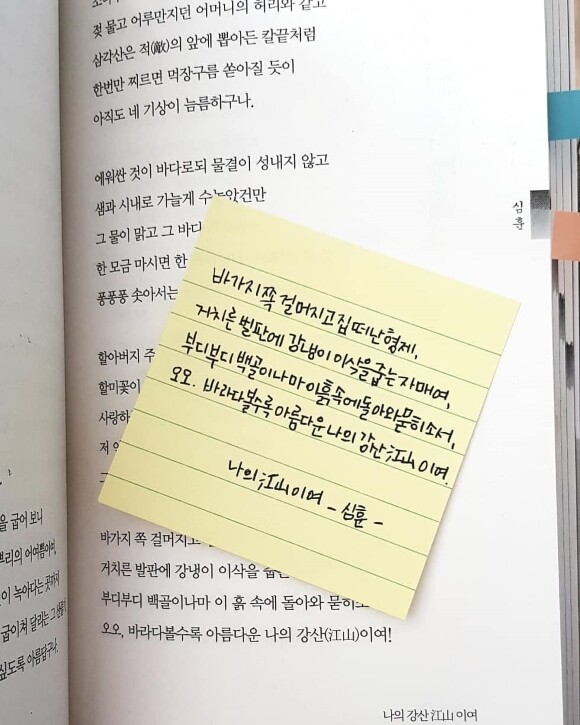 젖 물고 어루만지던 어머니의 허리와 같고
삼각산은 적(敵)의 앞에 뽑아든 칼끝처럼
한번만 찌르면 먹장구름 쏟아질 듯이
아직도 네 기상이 늠름하구나.
에워싼 것이 바다로되 물결이 성내지 않고
샘과 시내로 가늘게 수놓았건만
그 물이 맑고 그 바다
한 모금 마시면 한
퐁퐁퐁 솟아서는
할아버지 주
할미꽃이
사랑하
저
심훈
바가지 쪽 걸머지고 집 떠난 형제,
거치른 벌판에 강냉이 이삭을 줍는 자매여,
부디부디 백골이나마 이 흙속에 돌아와 묻히소서,
오오. 바라다볼수록 아름다운 나의 강산江山이여.
나의 江山이여 - 심훈 -
바가지 쪽 걸머지고
거치른 발판에 강냉이 이삭을 줍는
부디부디 백골이나마 이 흙 속에 돌아와 묻히소
오오, 바라다볼수록 아름다운 나의 강산(江山)이여!
나의 강산 江山 이여
을 굽어 보니
뿌리의 어여쁨이여,
이 녹아다는 곳까지
굽이쳐 달리는 그
싶도록 아름답구나.